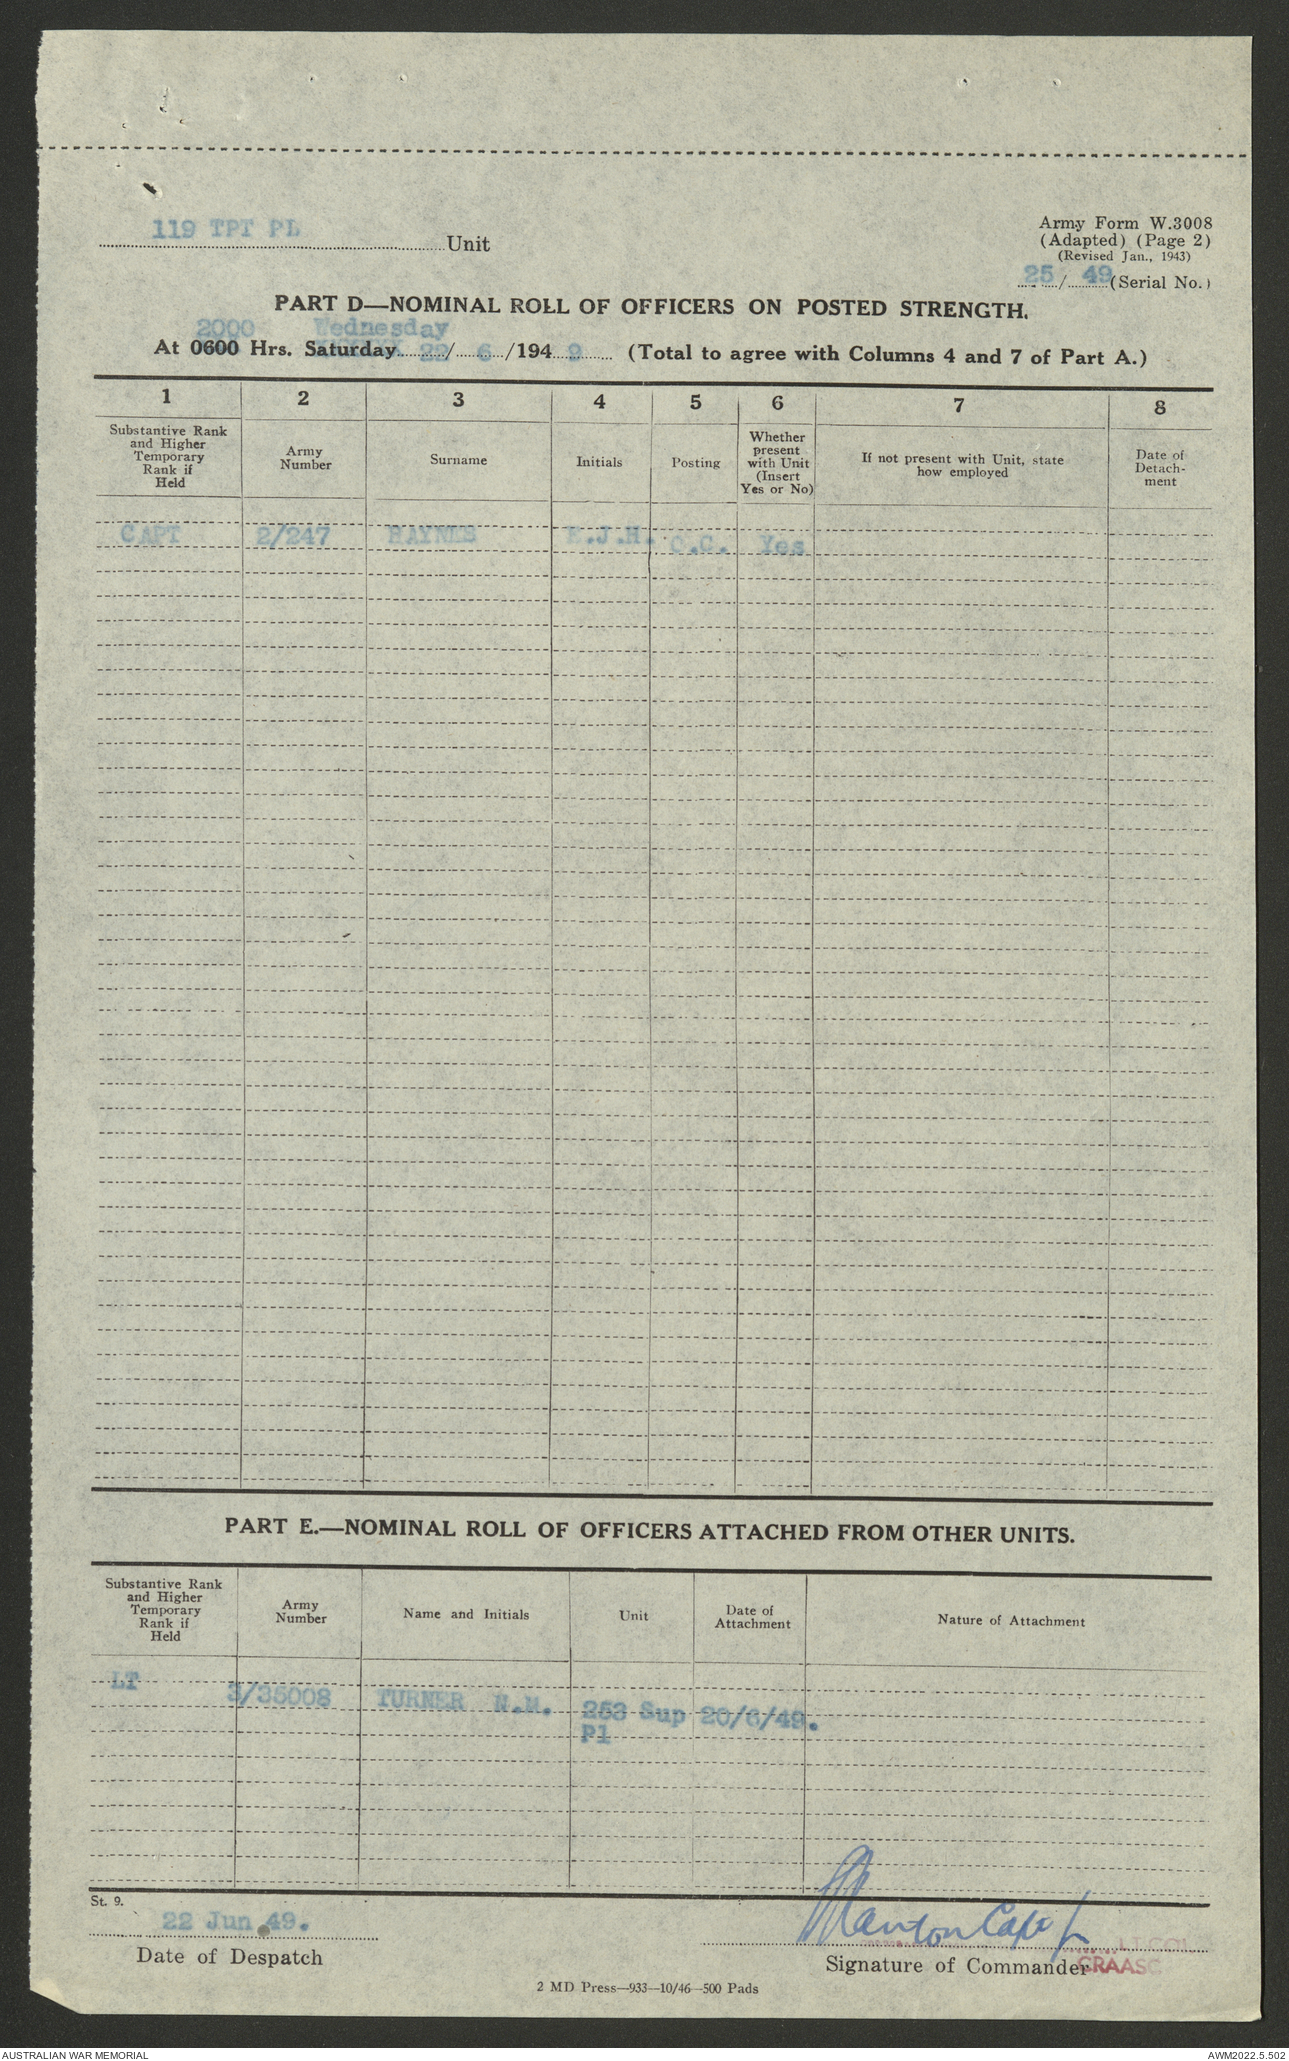 119 TPT PL Unit
Army Form W.3008
(Adapted) (Page 2)
(Revised Jan., 1943)
25 / 49 (Serial No.)
PART D—NOMINAL ROLL OF OFFICERS ON POSTED STRENGTH.
2000 Wednesday
At 0600 Hrs. Saturday 22 / 6 /194 9 (Total to agree with Columns 4 and 7 of Part A.)
1 2 3 4 5 6 7 8
Substantive Rank
and Higher
Temporary
Rank if
Held
Army
Number
Surname
Initials
Posting
Whether
present
with Unit
(Insert
Yes or No)
If not present with Unit, state
how employed
Date of
Detach-
ment
CAPT 2/247 HAYNES .J.H. O.C. Yes
PART E.—NOMINAL ROLL OF OFFICERS ATTACHED FROM OTHER UNITS.
Substantive Rank
and Higher
Temporary
Rank if
Held
Army
Number
Name and Initials
Unit
Date of
Attachment
Nature of Attachment
LT 3/35008 TURNER N.M. 253 Sup 20/6/49.
Pl
St. 9.
22 Jun 49.
Date of Despatch
Capt
LT COL
Signature of Commander
CRAASC
2 MD Press—933—10/46—500 Pads
AUSTRALIAN WAR MEMORIAL
AWM2022.5.502